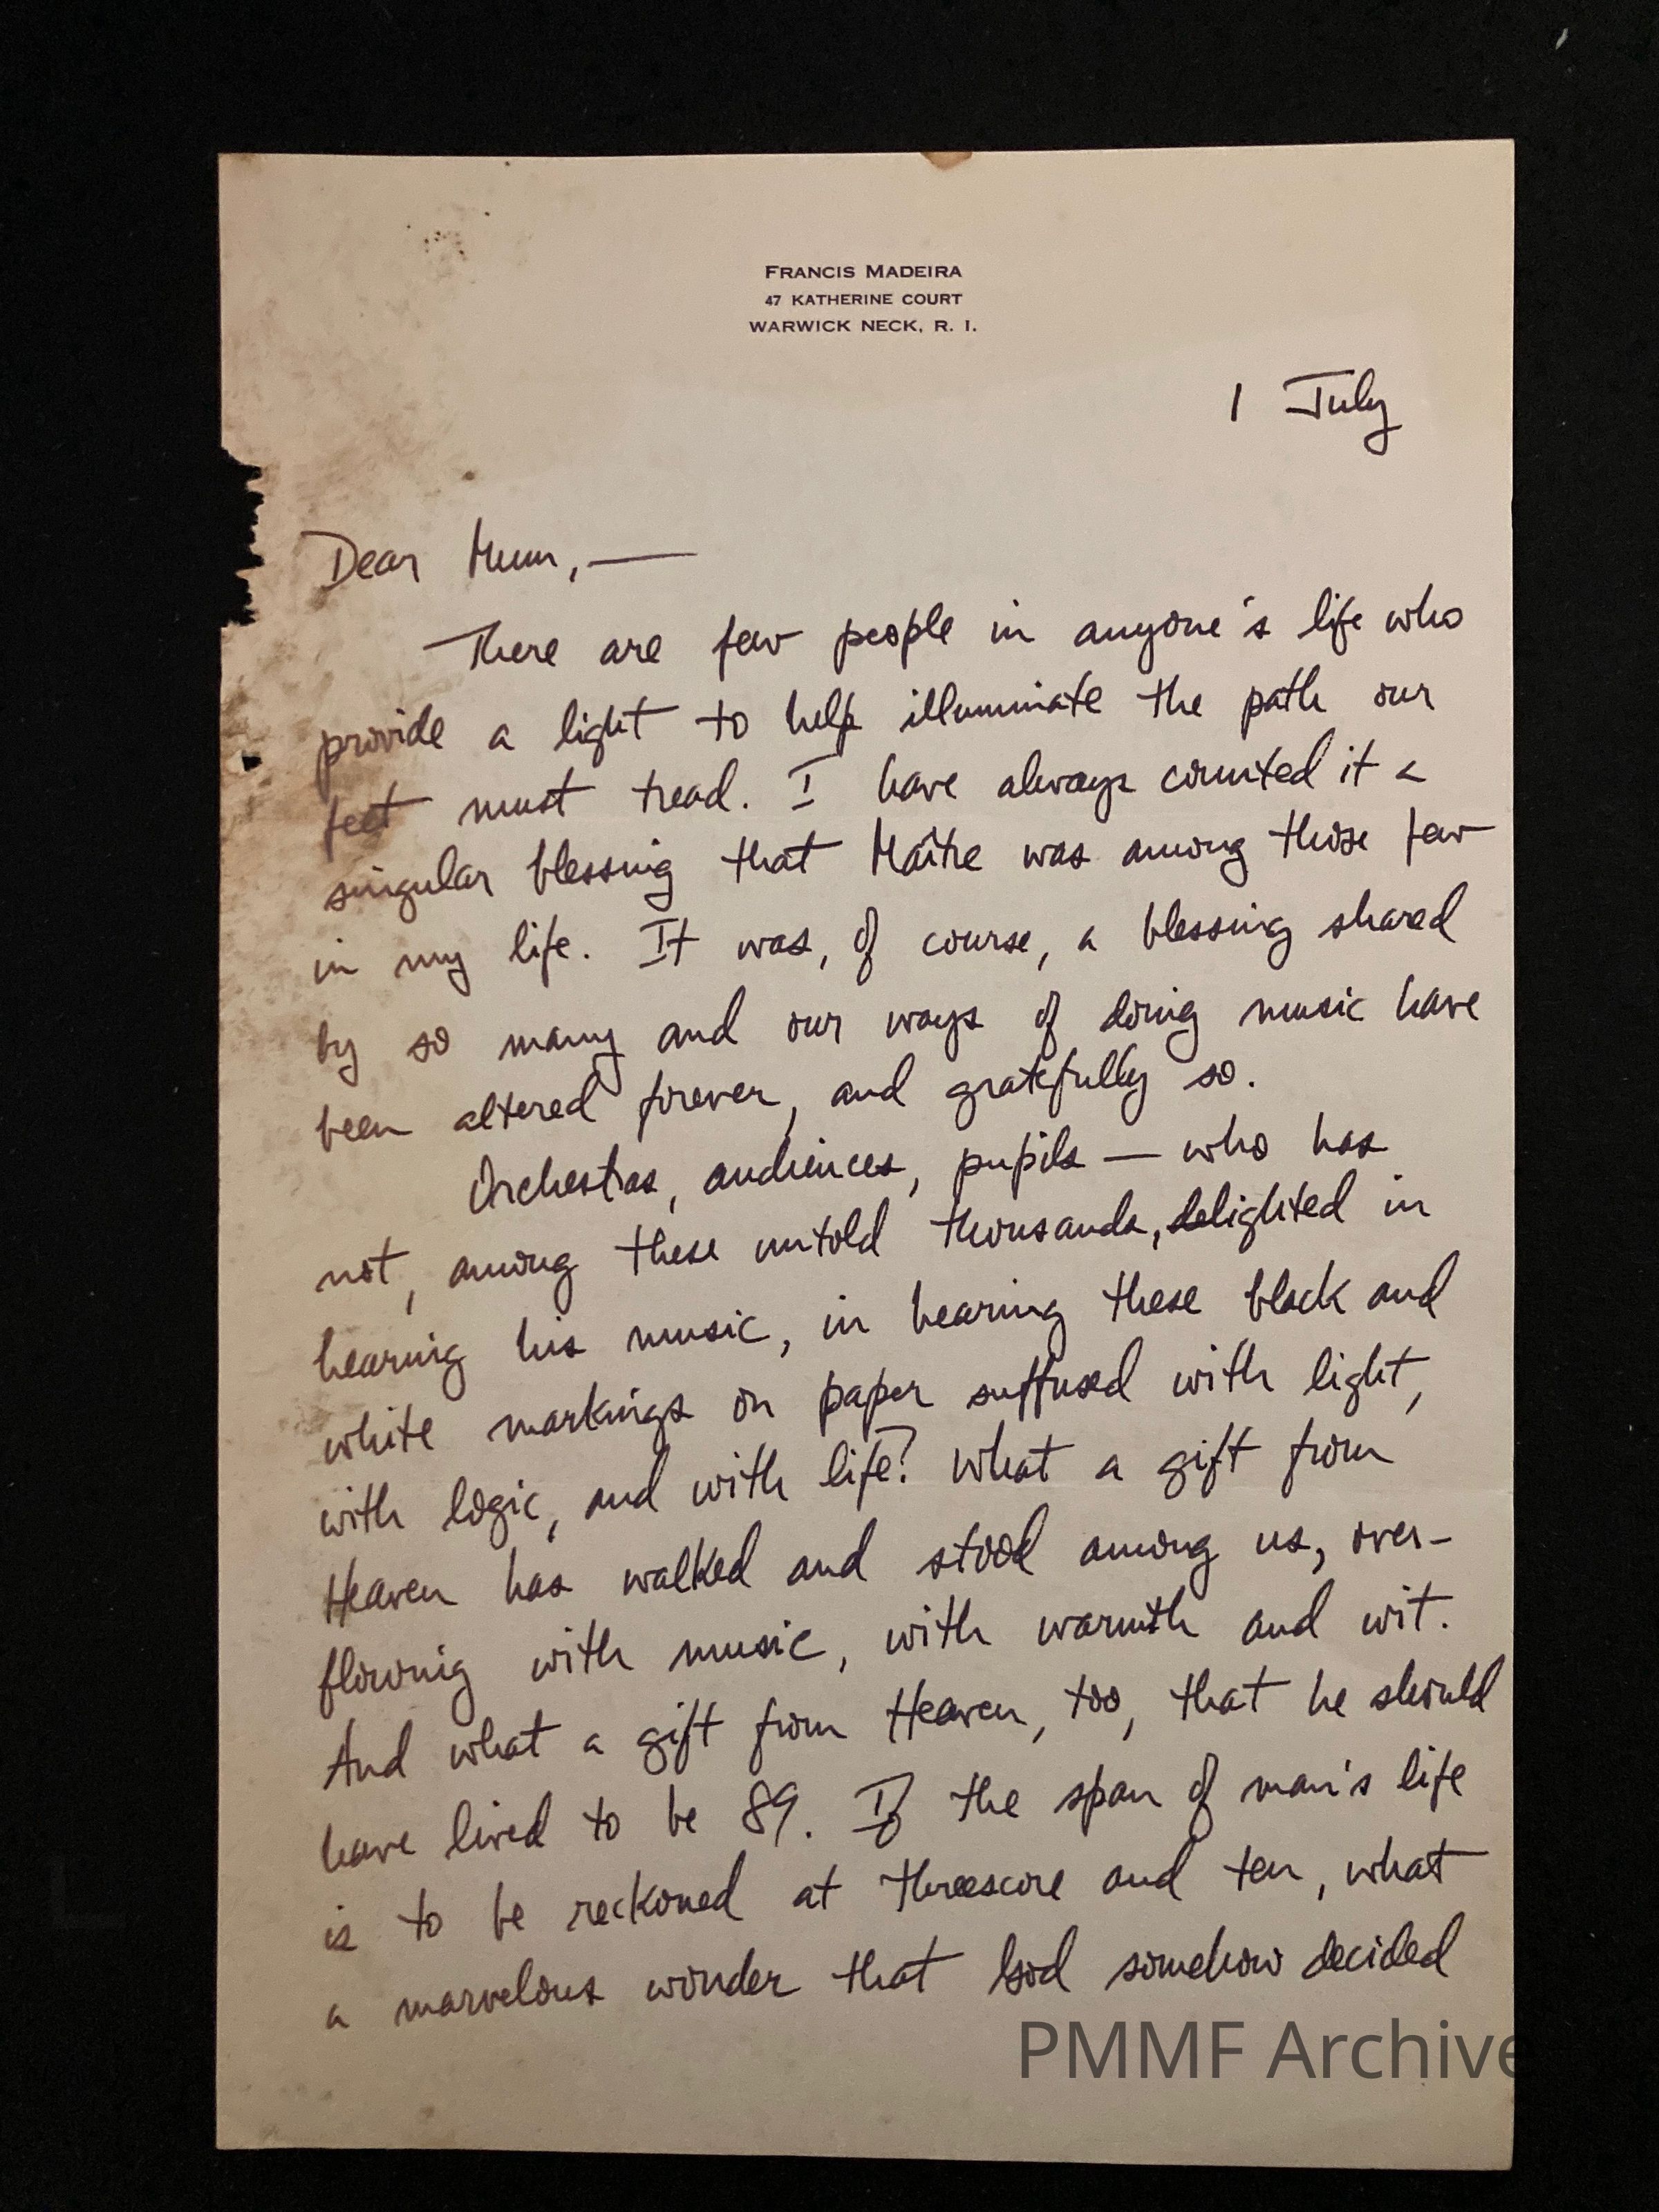 FRANCIS MADEIRA
47 KATHERINE COURT
WARWICK NECK, R. I.
1 July
Dear Mum, —
There are few people in anyone's life who
provide a light to help illuminate the path our
feet must tread. I have always counted it a
singular blessing that Maître was among those few
in my life. It was, of course, a blessing shared
by so many and our ways of doing music have
been altered forever, and gratefully so.
Orchestras, audiences, pupils — who has
not, among these untold thousands, delighted in
hearing his music, in hearing these black and
white markings on paper suffused with light,
with logic, and with life? What a gift from
Heaven has walked and stood among us, over-
flowing with music, with warmth and wit.
And what a gift from Heaven, too, that he should
have lived to be 89. If the span of man's life
is to be reckoned at threescore and ten, what
a marvelous wonder that God somehow decided
PMMF Archive